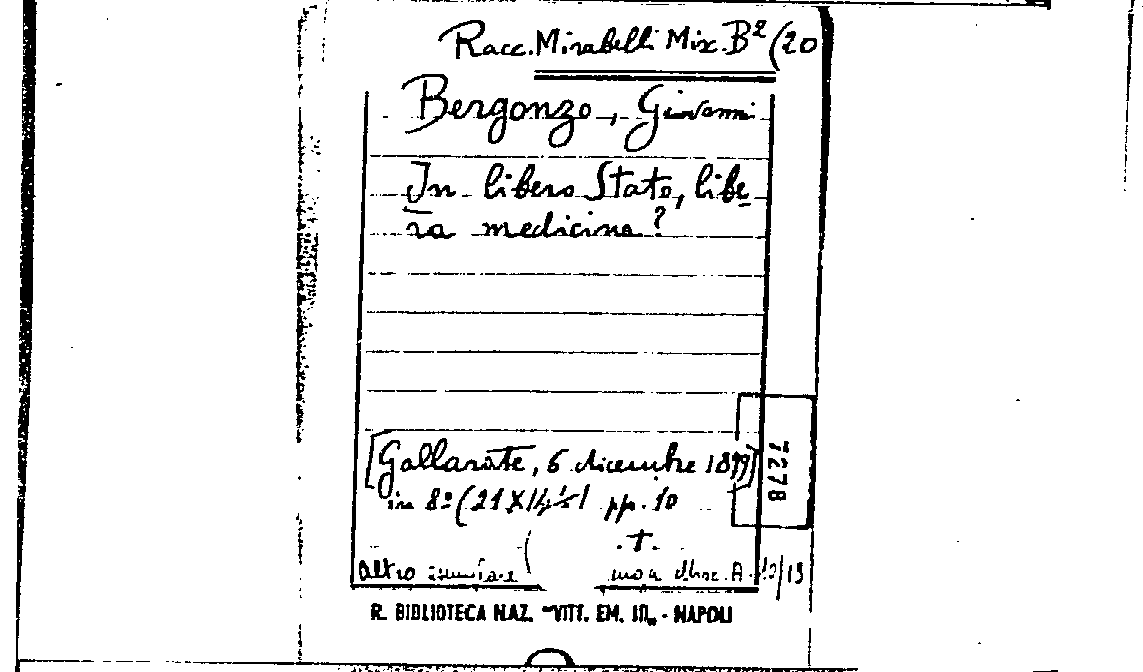 Racc. Mirabelli Mix. B² (20
Bergonzo, Giovanni
In libero Stato, libe-
ra medicina?
[Gallarate, 6 dicembre 1899]
in 8º (21 X 14½) pp. 10
7278
.T.
altro A. 10/19
R. BIBLIOTECA NAZ. "VITT. EM. III„ - NAPOLI